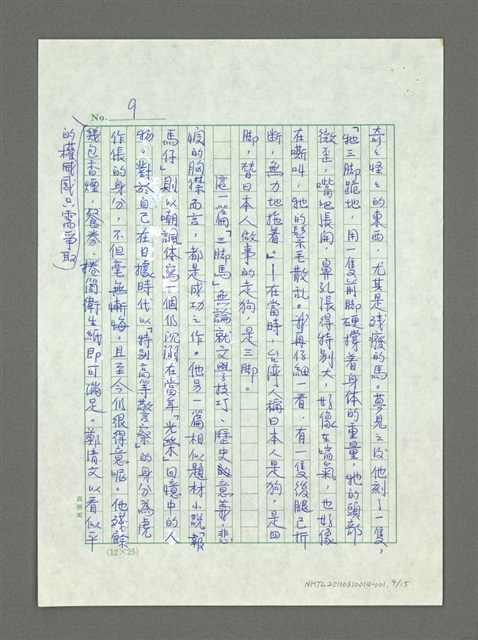 No. 9
奇奇怪怪的東西，尤其是殘廢的馬。夢見之後他刻了一隻，
「牠三脚跪地，用一隻前脚硬撐著身体的重量，牠的頭部
微歪，嘴吧張開，鼻孔張得特別大，好像在喘氣，也好像
在嘶叫，牠的鬃毛散亂。我再仔細一看，有一隻後腿已折
斷，無力地拖著」——在當時，台灣人稱日本人是狗，是四
脚，替日本人做事的走狗，是三脚。
這一篇「三脚馬」無論就文學技巧、歷史意義或悲
憫的胸襟而言，都是成功之作。他另一篇相似題材小說「報
馬仔」則以嘲諷体寫一個仍沉溺在當年「光榮」回憶中的人
物。對於自己在日據時代以「特別高等警察」的身分為虎
作倀的身分，不但毫無慚悔，且至今仍很得意呢。他殘餘
的權威感只需爭取
幾包香煙，餐券、捲筒衛生紙即可滿足。鄭清文以看似平
真善美
(12×25)
NMTL20110310014-001, 9/15